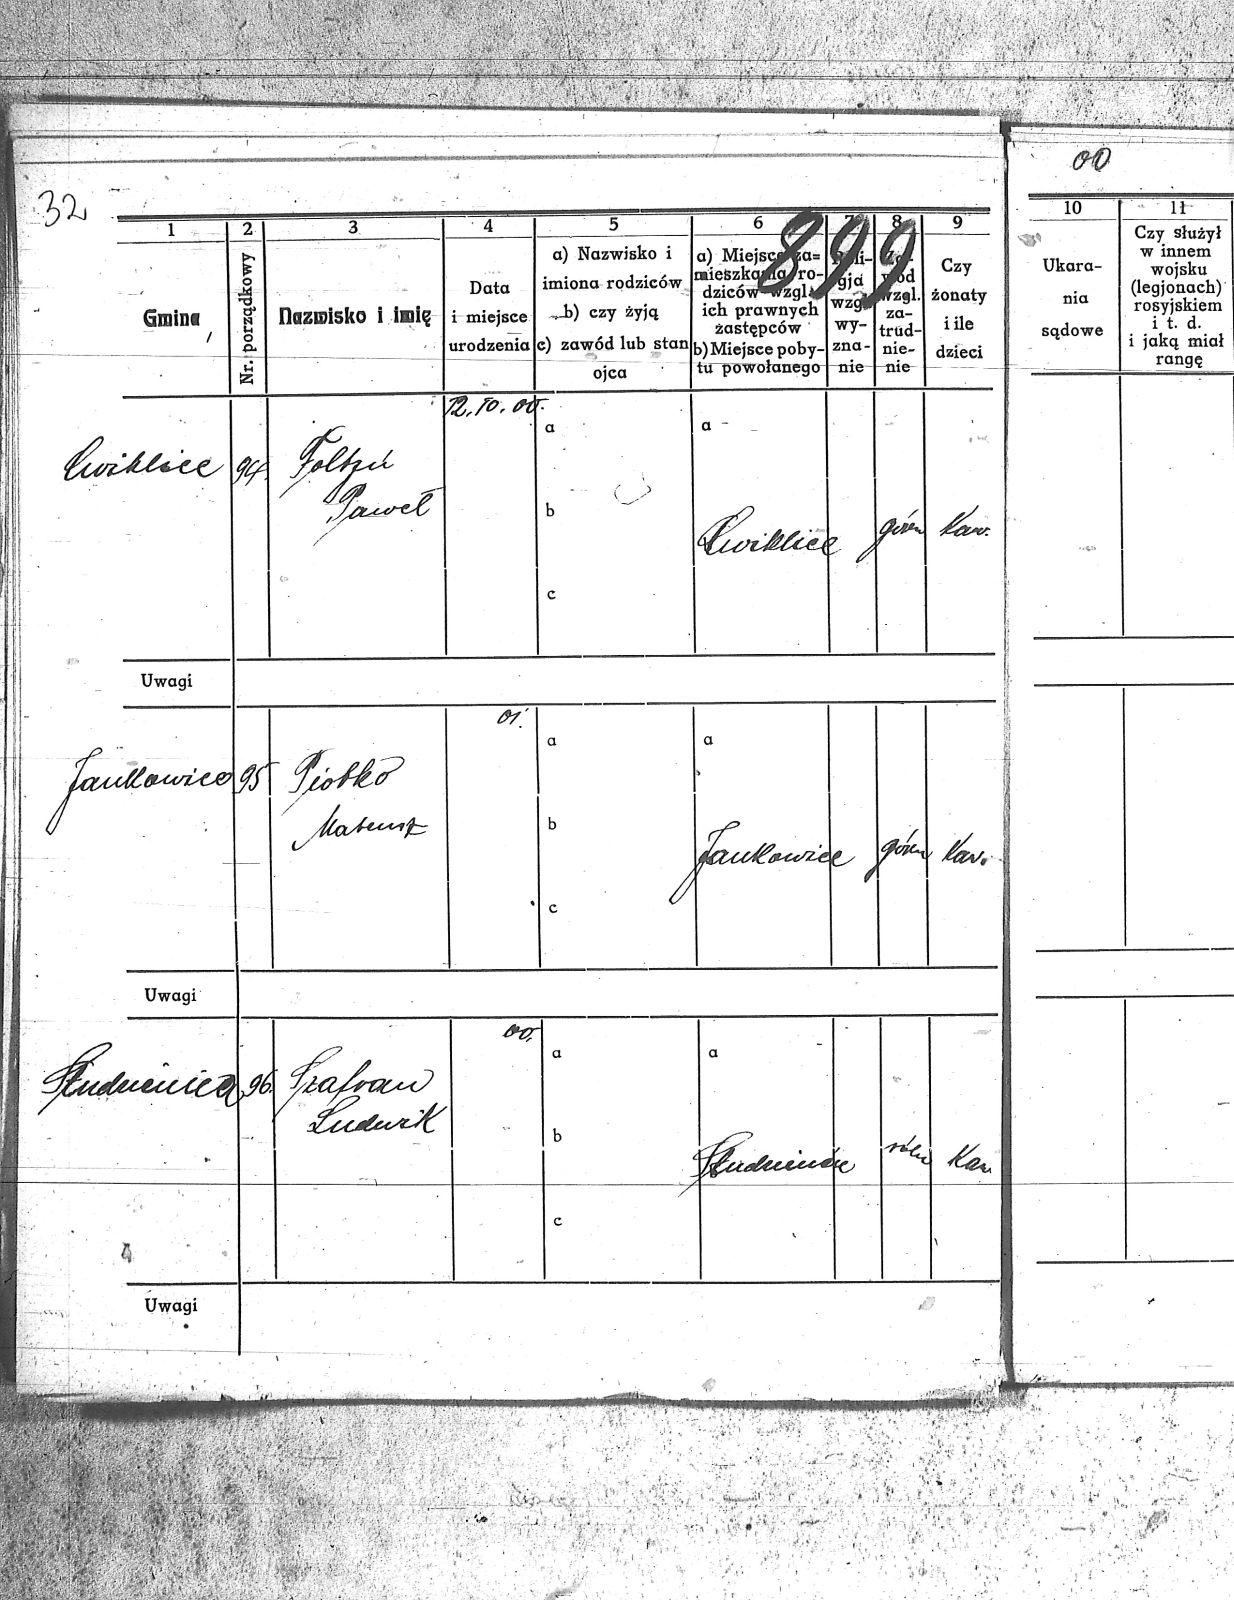 32
899
00
1
2
3
4
5
6
7
8
9
10
11
Gmina
Nr. porządkowy
Nazwisko i imię
Data
i miejsce
urodzenia
a) Nazwisko i
imiona rodziców
b) czy żyją
c) zawód lub stan
ojca
a) Miejsce za=
mieszkania ro-
dziców wzgl.
ich prawnych
zastępców
b) Miejsce poby-
tu powołanego
Reli-
gja
wzgl.
wy-
zna-
nie
Za-
wód
wzgl.
za-
trud-
nie-
nie
Czy
żonaty
i ile
dzieci
Ukara-
nia
sądowe
Czy służył
w innem
wojsku
(legjonach)
rosyjskiem
i t. d.
i jaką miał
rangę
12.10.00.
Cwiklice 94.
Paweł
a
b
c
a
Cwiklice górn Kaw.
Uwagi
01.
Jankowice 95 Piotko
Mateusz
a
b
c
a
Jankowice górn Kaw.
Uwagi
00.
Studzienice 96. Szafran
Ludwik
a
b
c
a
Studzienice róln Kaw
Uwagi